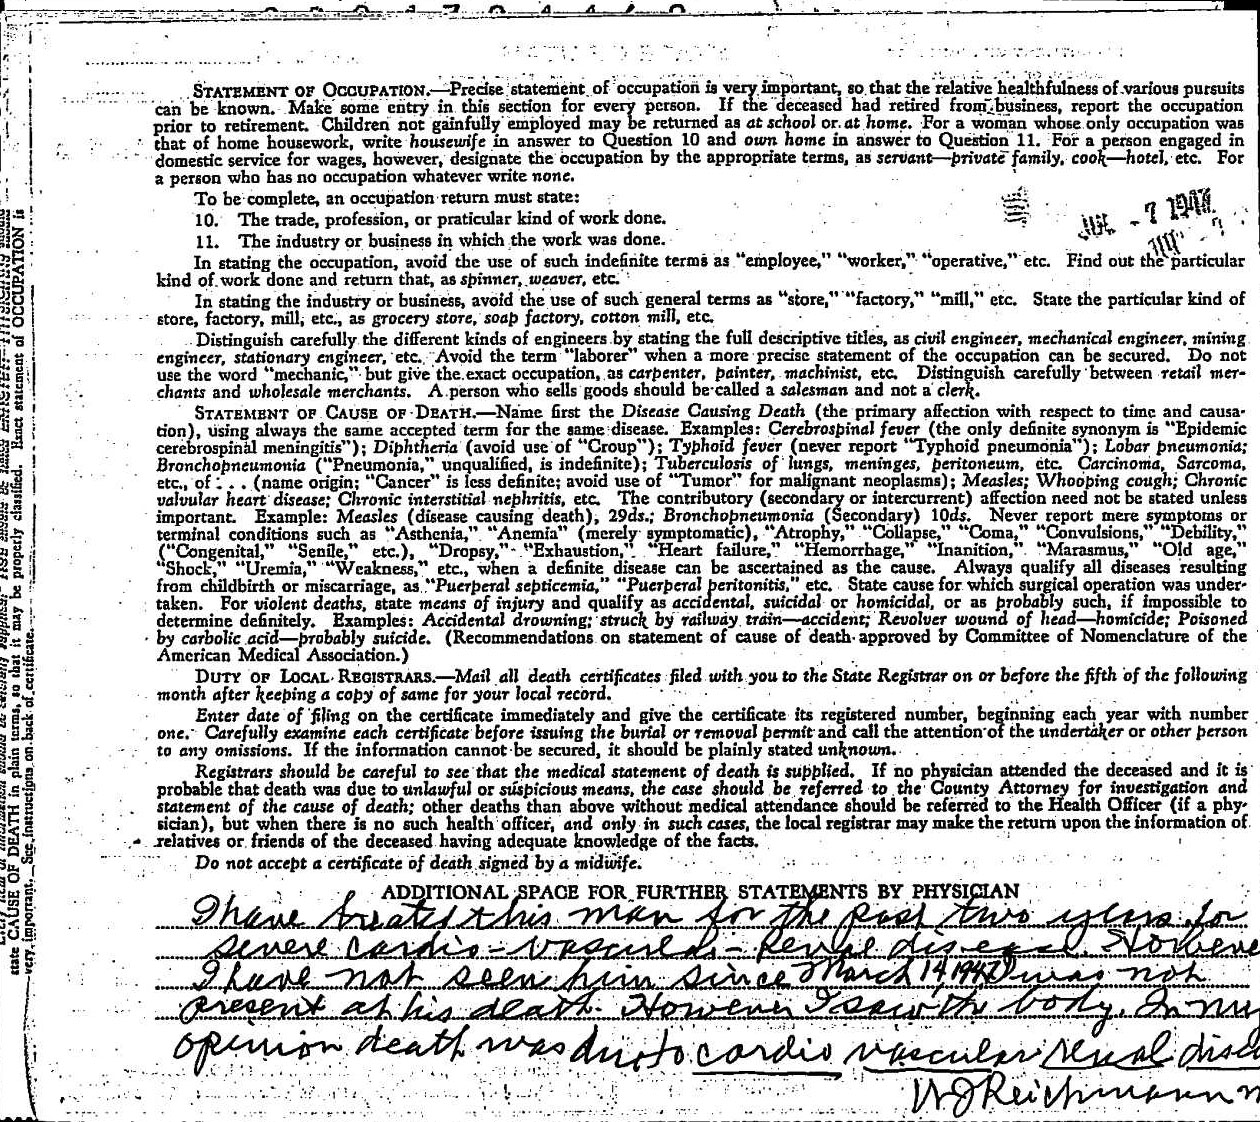 STATEMENT OF OCCUPATION.—Precise statement of occupation is very important, so that the relative healthfulness of various pursuits
can be known. Make some entry in this section for every person. If the deceased had retired from business, report the occupation
prior to retirement. Children not gainfully employed may be returned as at school or at home. For a woman whose only occupation was
that of home housework, write housewife in answer to Question 10 and own home in answer to Question 11. For a person engaged in
domestic service for wages, however, designate the occupation by the appropriate terms, as servant—private family, cook—hotel, etc. For
a person who has no occupation whatever write none.
To be complete, an occupation return must state:
10. The trade, profession, or praticular kind of work done.
11. The industry or business in which the work was done.
- 7 1947
In stating the occupation, avoid the use of such indefinite terms as "employee," "worker," "operative," etc. Find out the particular
kind of work done and return that, as spinner, weaver, etc.
In stating the industry or business, avoid the use of such general terms as "store," "factory," "mill," etc. State the particular kind of
store, factory, mill, etc., as grocery store, soap factory, cotton mill, etc.
Distinguish carefully the different kinds of engineers by stating the full descriptive titles, as civil engineer, mechanical engineer, mining
engineer, stationary engineer, etc. Avoid the term "laborer" when a more precise statement of the occupation can be secured. Do not
use the word "mechanic," but give the exact occupation, as carpenter, painter, machinist, etc. Distinguish carefully between retail mer-
chants and wholesale merchants. A person who sells goods should be called a salesman and not a clerk.
STATEMENT OF CAUSE OF DEATH.—Name first the Disease Causing Death (the primary affection with respect to time and causa-
tion), using always the same accepted term for the same disease. Examples: Cerebrospinal fever (the only definite synonym is "Epidemic
cerebrospinal meningitis"); Diphtheria (avoid use of "Croup"); Typhoid fever (never report "Typhoid pneumonia"); Lobar pneumonia;
Bronchopneumonia ("Pneumonia," unqualified, is indefinite); Tuberculosis of lungs, meninges, peritoneum, etc. Carcinoma, Sarcoma,
etc., of . . . (name origin; "Cancer" is less definite; avoid use of "Tumor" for malignant neoplasms); Measles; Whooping cough; Chronic
valvular heart disease; Chronic interstitial nephritis, etc. The contributory (secondary or intercurrent) affection need not be stated unless
important. Example: Measles (disease causing death), 29ds.; Bronchopneumonia (Secondary) 10ds. Never report mere symptoms or
terminal conditions such as "Asthenia," "Anemia" (merely symptomatic), "Atrophy," "Collapse," "Coma," "Convulsions," "Debility,"
("Congenital," "Senile," etc.), "Dropsy," "Exhaustion," "Heart failure," "Hemorrhage," "Inanition," "Marasmus," "Old age,"
"Shock," "Uremia," "Weakness," etc., when a definite disease can be ascertained as the cause. Always qualify all diseases resulting
from childbirth or miscarriage, as "Puerperal septicemia," "Puerperal peritonitis," etc. State cause for which surgical operation was under-
taken. For violent deaths, state means of injury and qualify as accidental, suicidal or homicidal, or as probably such, if impossible to
determine definitely. Examples: Accidental drowning; struck by railway train—accident; Revolver wound of head—homicide; Poisoned
by carbolic acid—probably suicide. (Recommendations on statement of cause of death approved by Committee of Nomenclature of the
American Medical Association.)
DUTY OF LOCAL REGISTRARS.—Mail all death certificates filed with you to the State Registrar on or before the fifth of the following
month after keeping a copy of same for your local record.
Enter date of filing on the certificate immediately and give the certificate its registered number, beginning each year with number
one. Carefully examine each certificate before issuing the burial or removal permit and call the attention of the undertaker or other person
to any omissions. If the information cannot be secured, it should be plainly stated unknown.
Registrars should be careful to see that the medical statement of death is supplied. If no physician attended the deceased and it is
probable that death was due to unlawful or suspicious means, the case should be referred to the County Attorney for investigation and
statement of the cause of death; other deaths than above without medical attendance should be referred to the Health Officer (if a phy-
sician), but when there is no such health officer, and only in such cases, the local registrar may make the return upon the information of
relatives or friends of the deceased having adequate knowledge of the facts.
Do not accept a certificate of death signed by a midwife.
ADDITIONAL SPACE FOR FURTHER STATEMENTS BY PHYSICIAN
I have treated this man for the past two years for
severe cardio-vascular-renal disease. Howeve
I have not seen him since March 14 1947 I was not
present at his death. However I saw the body. In my
opinion death was due to cardio vascular renal dise
W J Reichmann M
state CAUSE OF DEATH in plain terms, so that it may be properly classified. Exact statement of OCCUPATION is
very important. See instructions on back of certificate.